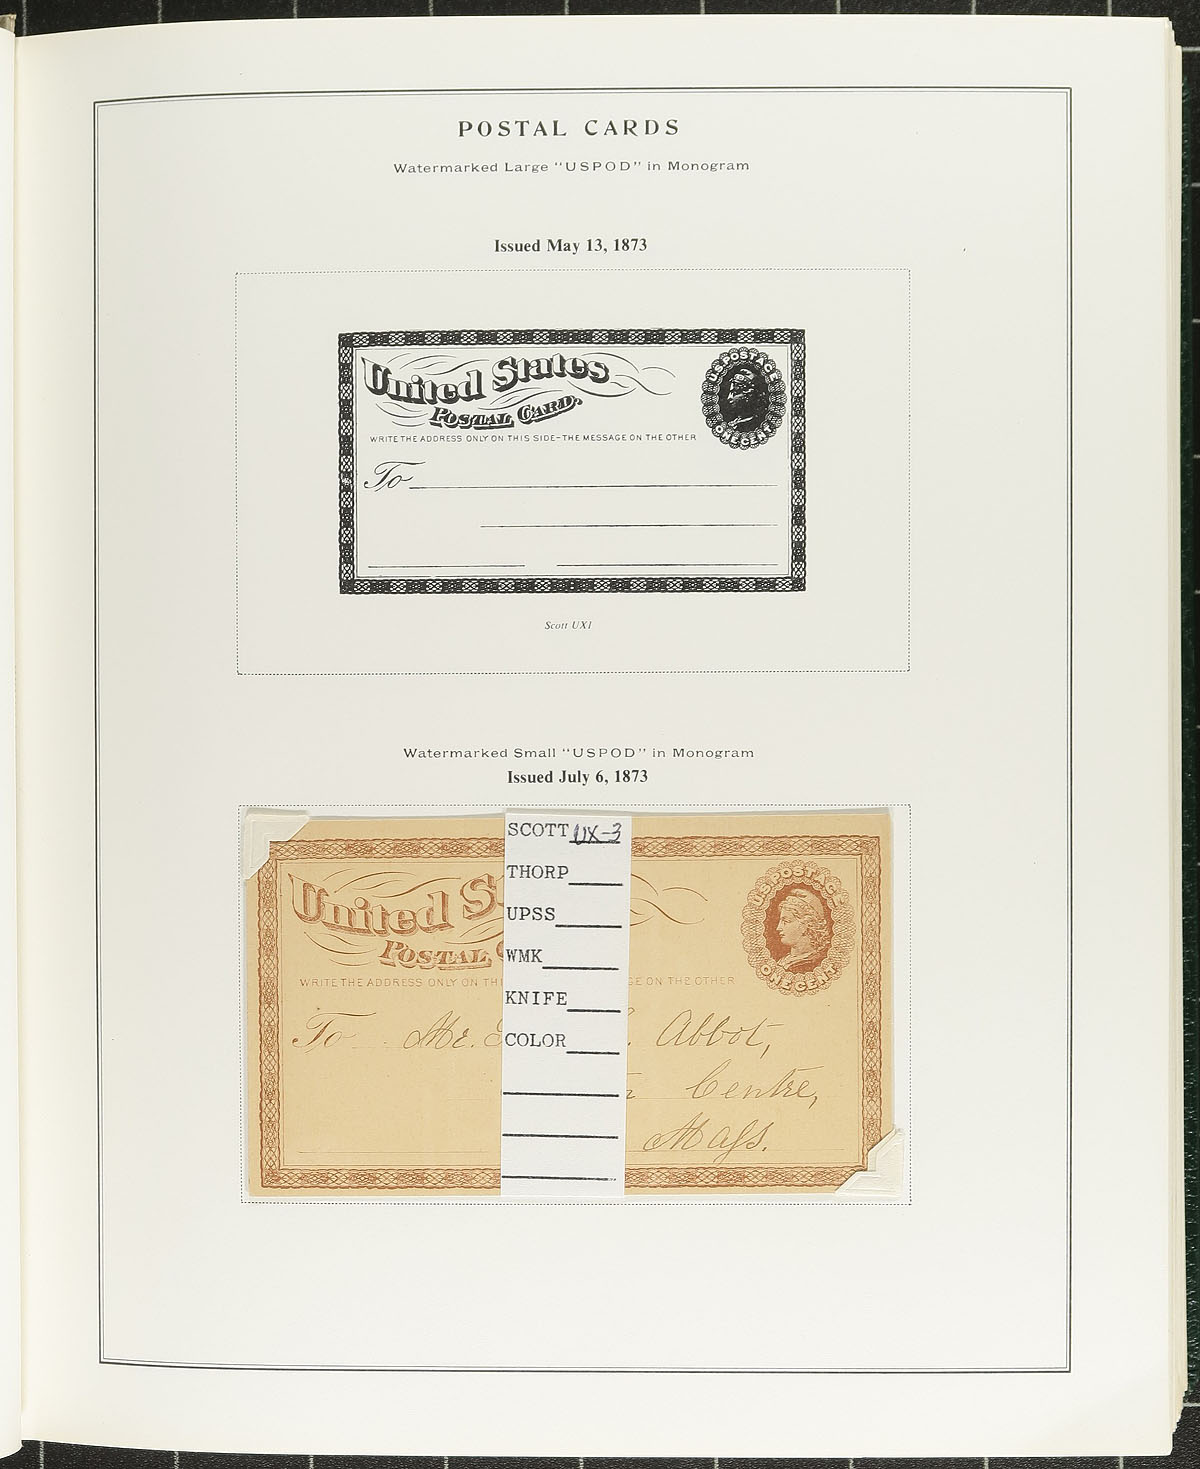 POSTAL CARDS
Watermarked Large "USPOD" in Monogram
Issued May 13, 1873
United States
POSTAL CARD.
U.S. POSTAGE
ONE CENT
WRITE THE ADDRESS ONLY ON THIS SIDE-THE MESSAGE ON THE OTHER
To
Scott UX1
Watermarked Small "USPOD" in Monogram
Issued July 6, 1873
SCOTT UX-3
THORP
UPSS
WMK
KNIFE
COLOR
United S
POSTAL C
U.S. POSTAGE
ONE CENT
WRITE THE ADDRESS ONLY ON THI GE ON THE OTHER
To Mr. Abbot,
Centre,
Mass.